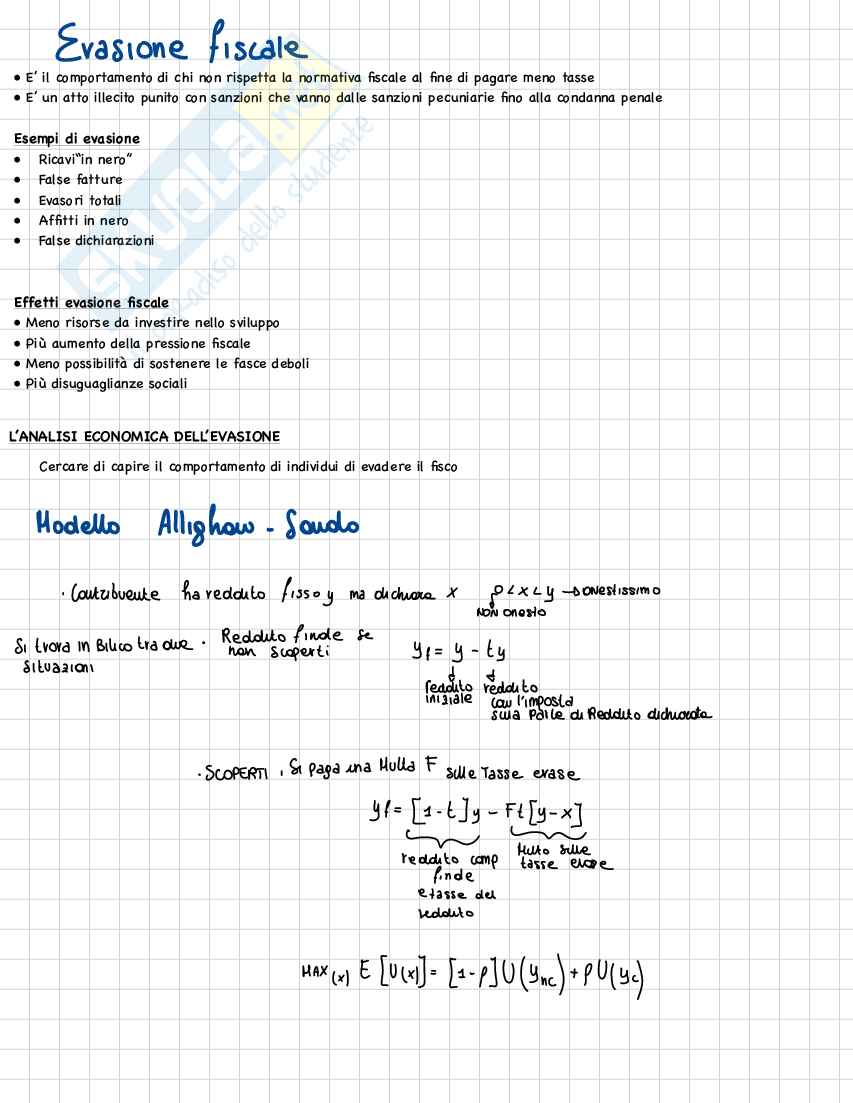 Evasione fiscale
• E' il comportamento di chi non rispetta la normativa fiscale al fine di pagare meno tasse
• E' un atto illecito punito con sanzioni che vanno dalle sanzioni pecuniarie fino alla condanna penale
Esempi di evasione
• Ricavi"in nero"
• False fatture
• Evasori totali
• Affitti in nero
• False dichiarazioni
SKUOLA.net
dello studente
Effetti evasione fiscale
• Meno risorse da investire nello sviluppo
• Più aumento della pressione fiscale
• Meno possibilità di sostenere le fasce deboli
• Più disuguaglianze sociali
L'ANALISI ECONOMICA DELL'EVASIONE
Cercare di capire il comportamento di individui di evadere il fisco
Modello Allighow - Sando
• Contribuente ha reddito fisso y ma dichiara x 0<x<y → onestissimo
NON onesto
Si trova in Bilico tra due situazioni
• Reddito finale se non scoperti
yf = y - ty
reddito iniziale
reddito con l'imposta sulla parte di Reddito dichiarata
• SCOPERTI, Si paga una Multa F sulle Tasse evase
yf = [1-t]y - Ft[y-x]
reddito comp finale e tasse del reddito
Multo sulle tasse evase
MAX(x) E [U(x)] = [1-p]U(ync) + pU(yc)